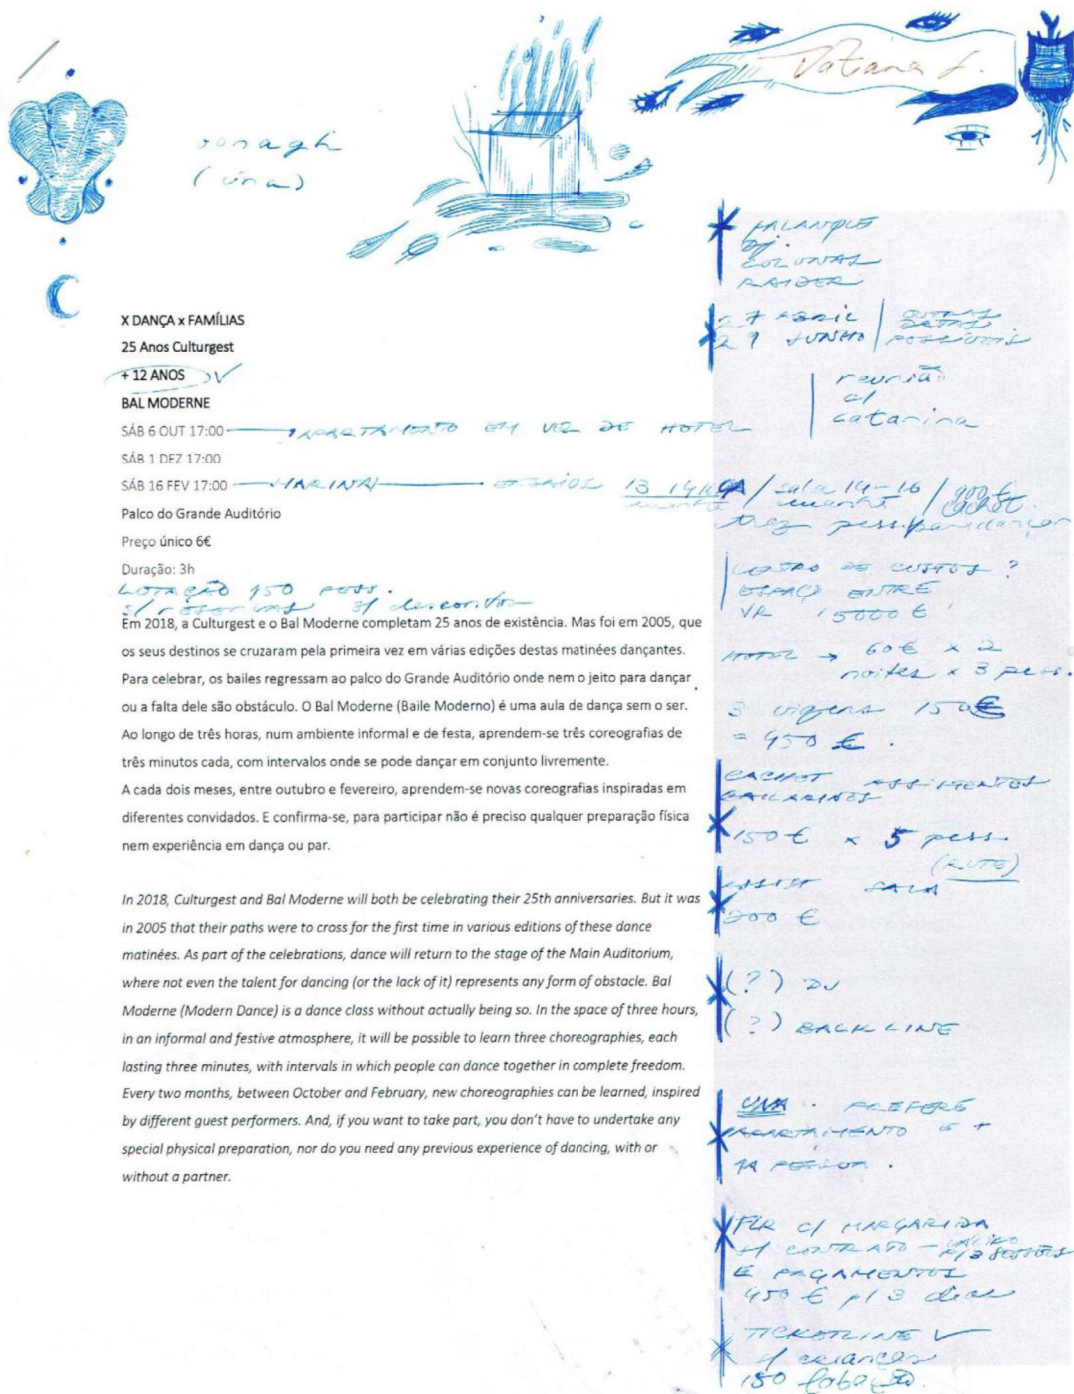 Tatiana L.
oonagh
(úna)
PALANQUE
DJ.
COLUNAS
RAIDER
27 ABRIL | OUTRAS DATAS
29 JUNHO | POSSÍVEIS
reunião
c/
catarina
X DANÇA x FAMÍLIAS
25 Anos Culturgest
+ 12 ANOS
BAL MODERNE
SÁB 6 OUT 17:00 APARTAMENTO EM VEZ DE HOTEL
SÁB 1 DEZ 17:00
SÁB 16 FEV 17:00 MARINA ENSAIOS 13 14 / sala 14-16 manhã / cachet
traz pess. para dançar
Palco do Grande Auditório
Preço único 6€
Duração: 3h
LOTAÇÃO 150 PESS.
s/ RESERVAS s/ descontos
Em 2018, a Culturgest e o Bal Moderne completam 25 anos de existência. Mas foi em 2005, que
os seus destinos se cruzaram pela primeira vez em várias edições destas matinées dançantes.
Para celebrar, os bailes regressam ao palco do Grande Auditório onde nem o jeito para dançar
ou a falta dele são obstáculo. O Bal Moderne (Baile Moderno) é uma aula de dança sem o ser.
Ao longo de três horas, num ambiente informal e de festa, aprendem-se três coreografias de
três minutos cada, com intervalos onde se pode dançar em conjunto livremente.
A cada dois meses, entre outubro e fevereiro, aprendem-se novas coreografias inspiradas em
diferentes convidados. E confirma-se, para participar não é preciso qualquer preparação física
nem experiência em dança ou par.
In 2018, Culturgest and Bal Moderne will both be celebrating their 25th anniversaries. But it was
in 2005 that their paths were to cross for the first time in various editions of these dance
matinées. As part of the celebrations, dance will return to the stage of the Main Auditorium,
where not even the talent for dancing (or the lack of it) represents any form of obstacle. Bal
Moderne (Modern Dance) is a dance class without actually being so. In the space of three hours,
in an informal and festive atmosphere, it will be possible to learn three choreographies, each
lasting three minutes, with intervals in which people can dance together in complete freedom.
Every two months, between October and February, new choreographies can be learned, inspired
by different guest performers. And, if you want to take part, you don't have to undertake any
special physical preparation, nor do you need any previous experience of dancing, with or
without a partner.
CENTRO DE CUSTOS ?
ESPAÇO ENTRE
VR 15000 €
HOTEL → 60 € x 2
noites x 3 pess.
3 viagens 150 €
= 450 €.
CACHET ASSIMENTOS
BAILARINOS
150 € x 5 pess.
(RUTE)
ASSIST SALA
200 €
(?) DJ
(?) BACKLINE
UNA . PREFERE
APARTAMENTO E +
1A PESSOA .
FLR C/ MARGARIDA
s/ CONTRATO - ÚNICO P/ 3 SESSÕES
E PAGAMENTOS
450 € p/ 3 dias
TICKETLINE
s/ crianças
150 lotação.